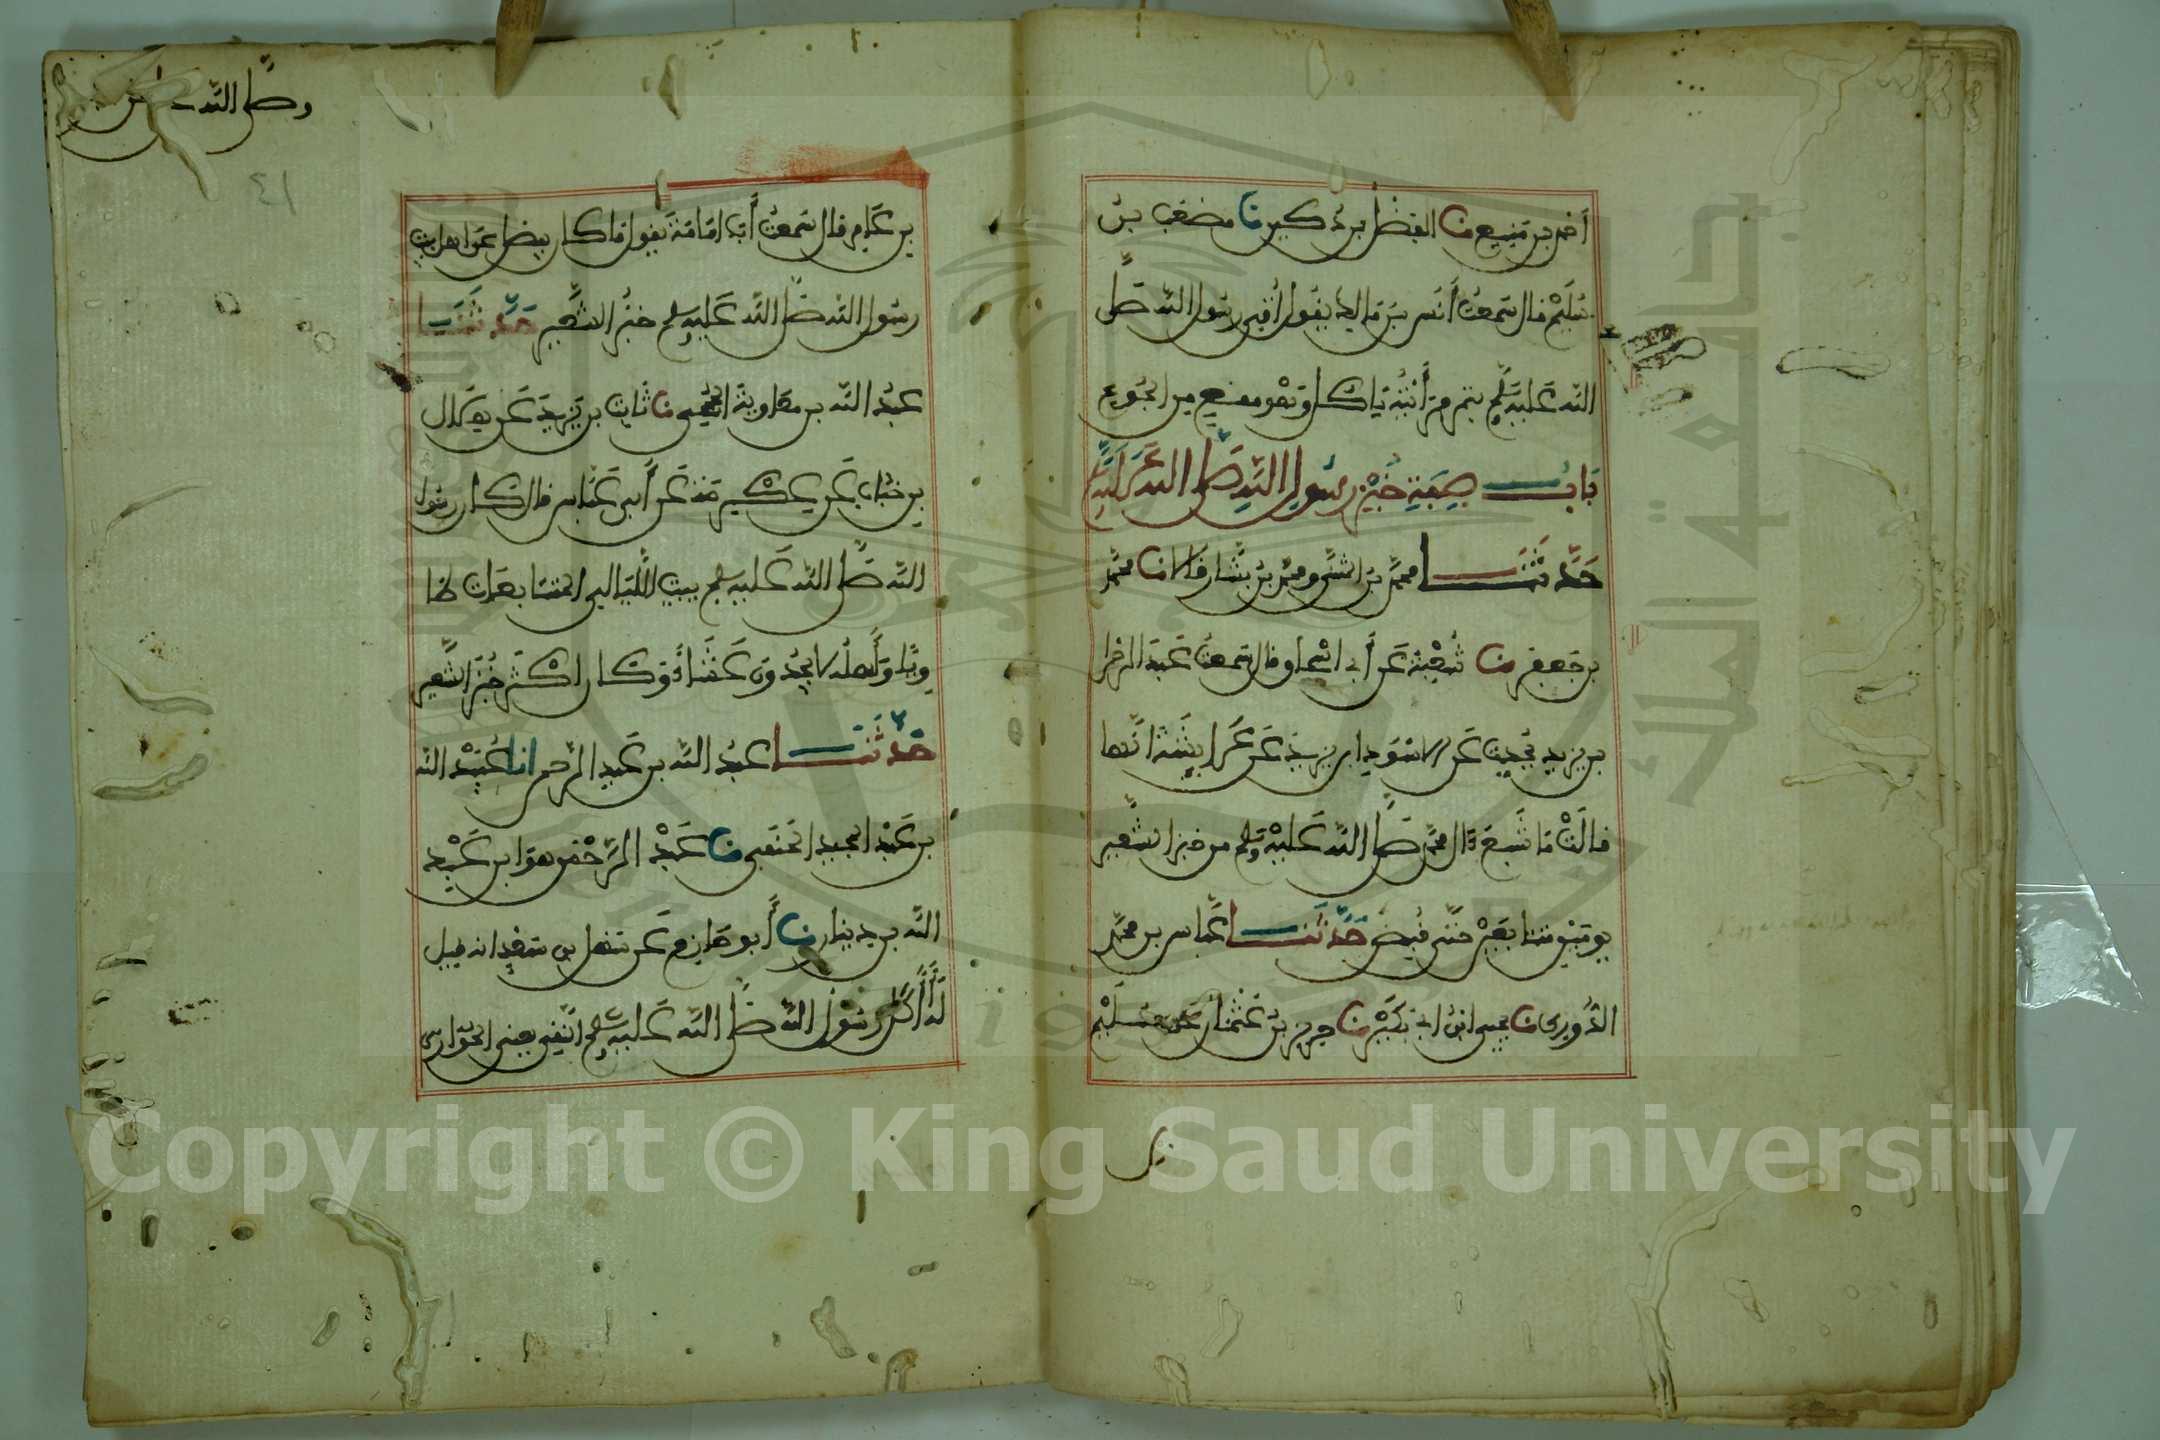 أحمد بن منيع نا الفضل بن دكين نا مصعب بن
سليم قال سمعت أنس بن مالك يقول أتي رسول الله صلى
الله عليه وسلم بتمر فرأيته ياكل وهو مقع من الجوع
باب صفة خبز رسول الله صلى الله عليه
حدثنا محمد بن المثنى ومحمد بن بشار قالا نا محمد
بن جعفر نا شعبة عن أبي إسحاق قال سمعت عبد الرحمن
بن يزيد يحدث عن الاسود ابن يزيد عن عائشة انها
قالت ما شبع ءال محمد صلى الله عليه وسلم من خبز الشعير
يومين متتابعين حتى قبض حدثنا عباس بن محمد
الدوري نا يحيى ابن ابي بكير نا حريز بن عثمان عن سليم
بن عامر قال سمعت أبا امامة يقول ما كان يفضل عن اهل بيت
رسول الله صلى الله عليه وسلم خبز الشعير حدثنا
عبد الله بن معاوية الجمحي نا ثابت بن يزيد عن هلال
بن خباب عن عكرمة عن أبن عباس قال كان رسول
الله صلى الله عليه وسلم يبيت الليالي المتتابعات طا
ويا وأهله لا يجدون عشاء وكان اكثر خبز الشعير
حدثنا عبد الله بن عبد الرحمن انا عبيد الله
بن عبد المجيد الحنفي نا عبد الرحمن هو ابن عبد
الله بن دينار نا أبو حازم عن سهل بن سعد انه قيل
له أأكل رسول الله صلى الله عليه وسلم النقي يعني الحوارى
وصلى الله
٤١
بن
Copyright © King Saud University
جامعة الملك سعود
1957